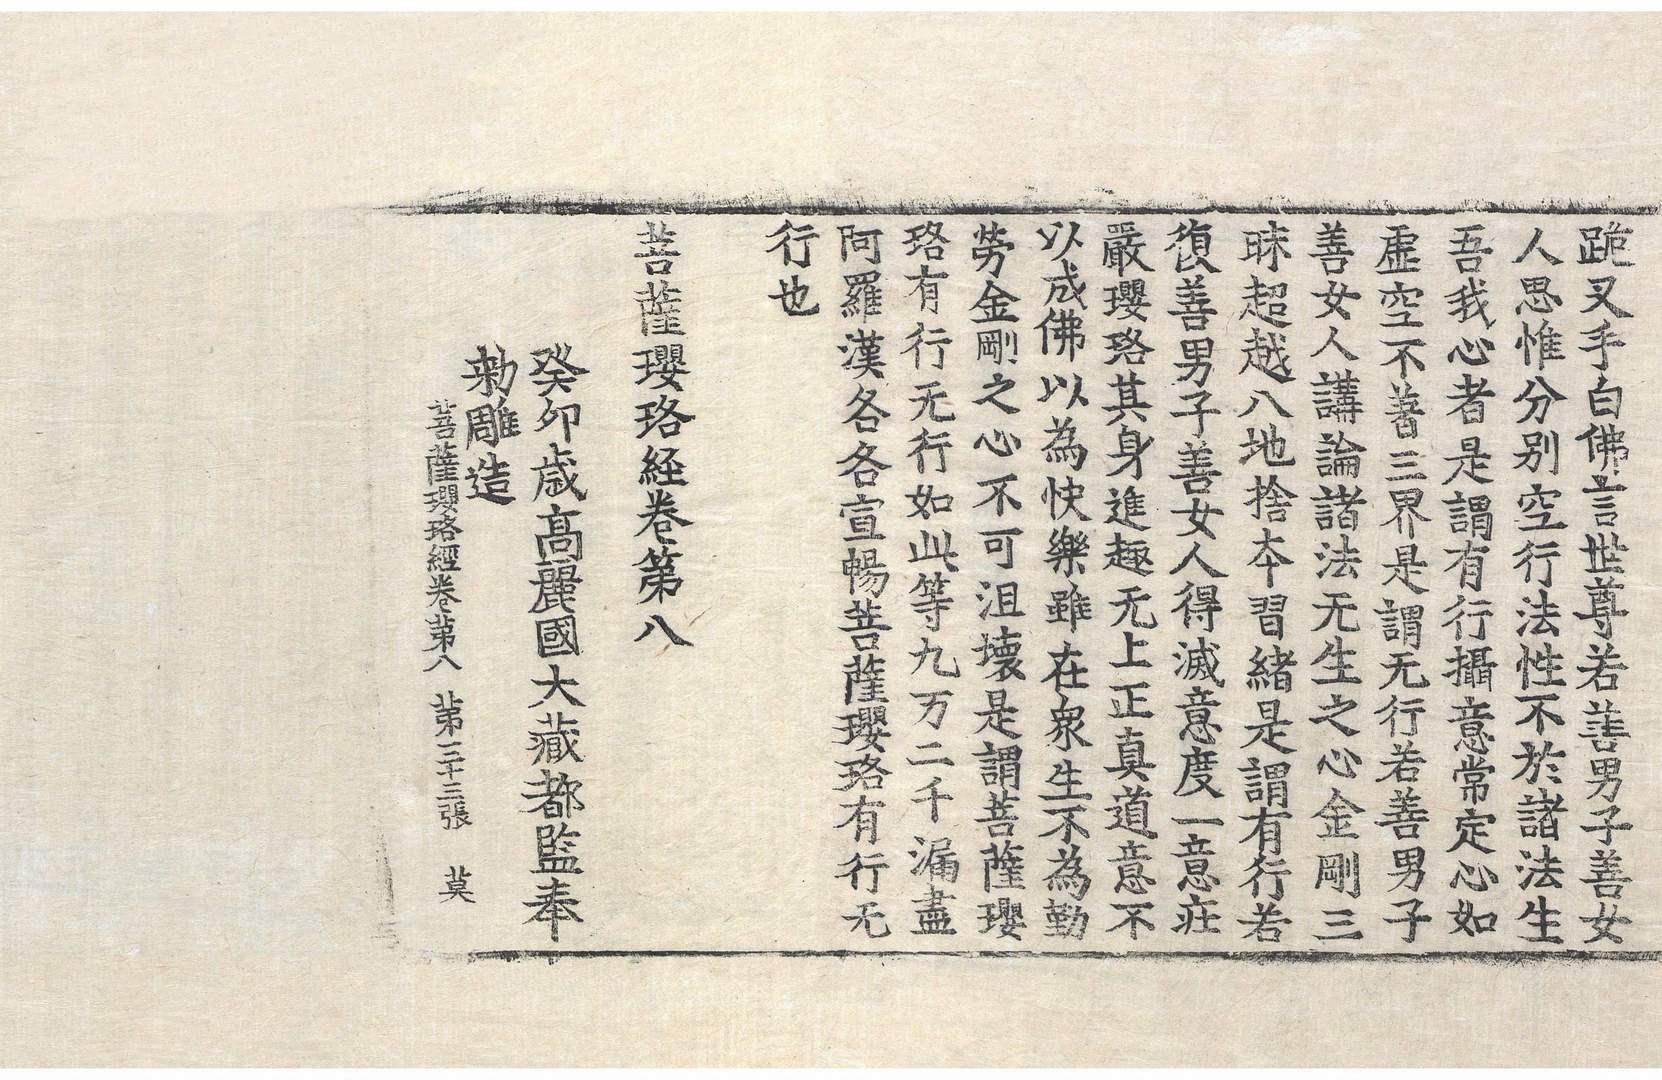 跪叉手白佛言世尊若善男子善女
人思惟分别空行法性不於諸法生
吾我心者是謂有行攝意常定心如
虛空不著三界是謂无行若善男子
善女人講論諸法无生之心金剛三
昧超越八地捨本習緒是謂有行若
復善男子善女人得滅意度一意莊
嚴瓔珞其身進趣无上正真道意不
以成佛以為快樂雖在衆生不為勤
勞金剛之心不可沮壞是謂菩薩瓔
珞有行无行如此等九万二千漏盡
阿羅漢各各宣暢菩薩瓔珞有行无
行也
菩薩瓔珞経卷第八
癸卯歲高麗國大藏都監奉
勑雕造
菩薩瓔珞經卷第八 第三十三張 莫